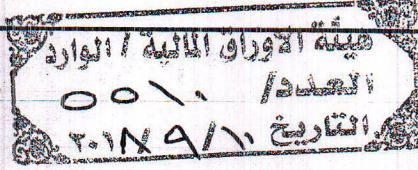 هيئة الاوراق المالية / الوارد
العدد/ ٥٥١٠
التاريخ ٢٠١٨/٩/١٠